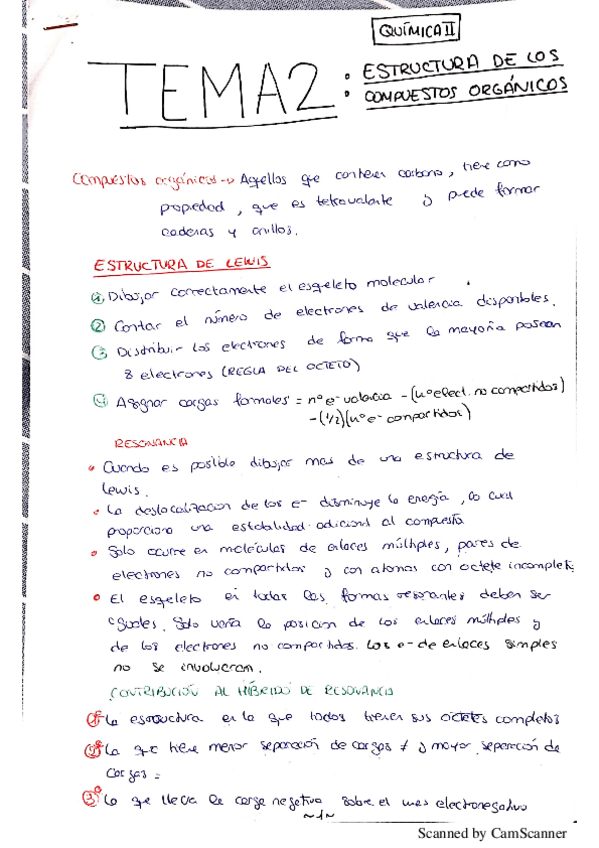 QUÍMICA II
TEMA 2: ESTRUCTURA DE LOS
COMPUESTOS ORGÁNICOS
Compuestos orgánicos → Aquellos que contienen carbono, tiene como
propiedad, que es tetravalente y puede formar
cadenas y anillos.
ESTRUCTURA DE LEWIS
① Dibujar correctamente el esqueleto molecular.
② Contar el número de electrones de valencia disponibles.
③ Distribuir los electrones de forma que la mayoría posean
8 electrones (REGLA DEL OCTETO)
④ Asignar cargas formales = nº e- valencia - (nº elect. no compartidos)
- (1/2)(nº e- compartidos)
RESONANCIA
• Cuando es posible dibujar mas de una estructura de
Lewis.
• La deslocalización de los e- disminuye la energía, lo cual
proporciona una estabilidad adicional al compuesto
• Solo ocurre en moléculas de enlaces múltiples, pares de
electrones no compartidos y con atomos con octete incompleto
• El esqueleto en todas las formas resonantes deben ser
iguales. Solo varía la posicion de los enlaces múltiples y
de los electrones no compartidos. Los e- de enlaces simples
no se involucran.
CONTRIBUCIÓN AL HÍBRIDO DE RESONANCIA
1º La estructura en la que todos tienen sus octetes completos
2º La que tiene menor separación de cargas ≠ y mayor separación de
cargas =
3º La que lleva la carga negativa sobre el mas electronegativo
~1~
Scanned by CamScanner